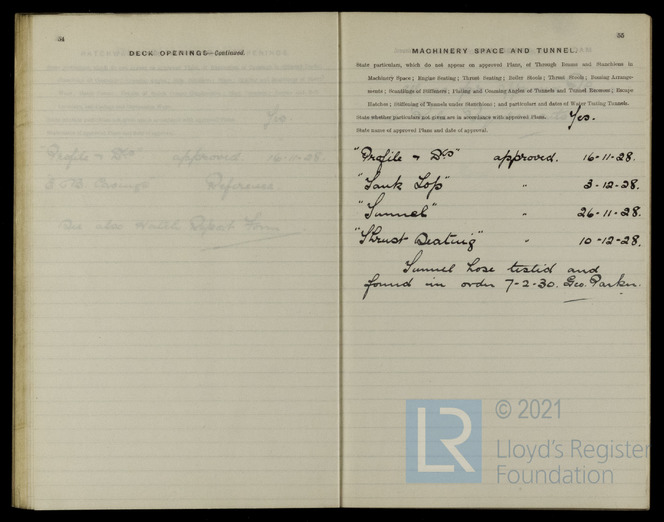 54
DECK OPENINGS—Continued.
Yes.
"Profile & Dks" approved. 16-11-28.
Reference
See also Watch Report Form
55
MACHINERY SPACE AND TUNNEL.
State particulars, which do not appear on approved Plans, of Through Beams and Stanchions in
Machinery Space; Engine Seating; Thrust Seating; Boiler Stools; Thrust Stools; Bossing Arrange-
ments; Scantlings of Stiffeners; Plating and Coaming Angles of Tunnels and Tunnel Recesses; Escape
Hatches; Stiffening of Tunnels under Stanchions; and particulars and dates of Water Testing Tunnels.
State whether particulars not given are in accordance with approved Plans. Yes.
State name of approved Plans and date of approval.
"Profile & Dks" approved. 16-11-28.
"Tank Top" " 3-12-28.
"Tunnel" " 26-11-28.
"Thrust Seating" " 10-12-28.
Tunnel hose tested and
found in order 7-2-30. Geo. Parker.
LR
© 2021
Lloyd's Register
Foundation